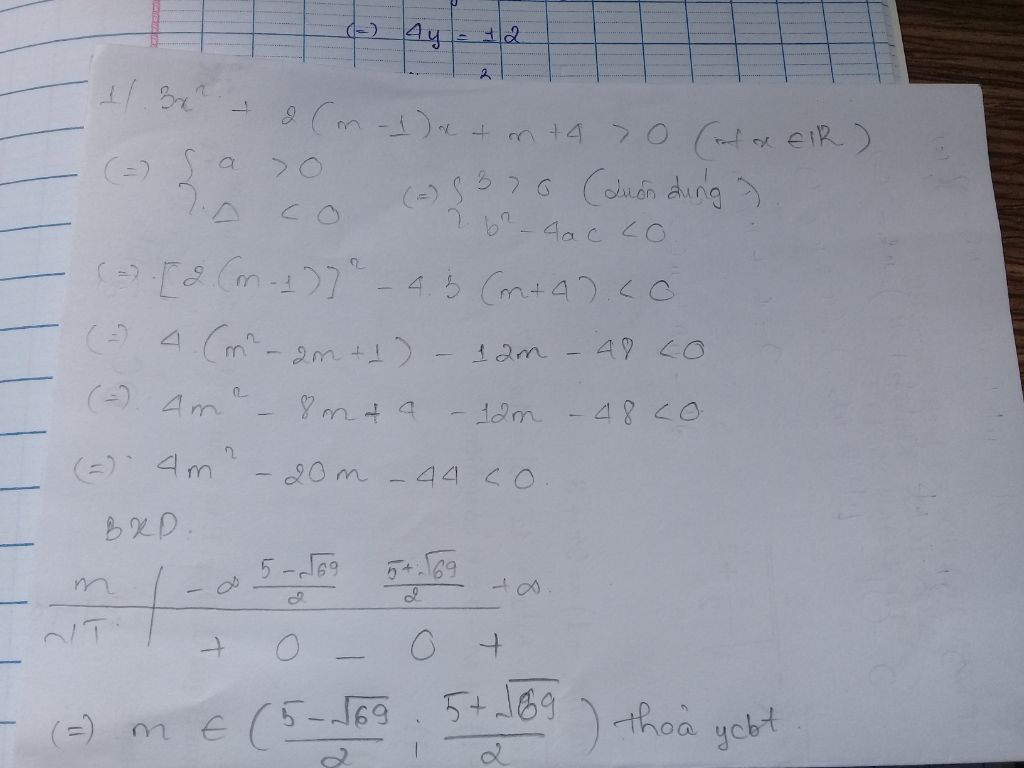 (=) 4y = ±2
1/ 3x² + 2(m-1)x + m+4 > 0 (∀x ∈ IR)
(=) { a > 0 (=) { 3 > 0 (luôn đúng)
Δ < 0 b² - 4ac < 0
(=) [2.(m-1)]² - 4.3 (m+4) < 0
(=) 4.(m² - 2m + 1) - 12m - 48 < 0
(=) 4m² - 8m + 4 - 12m - 48 < 0
(=) 4m² - 20m - 44 < 0.
BXD:
m | -∞ (5-√69)/2 (5+√69)/2 +∞
VT | + 0 - 0 +
(=) m ∈ ((5-√69)/2 ; (5+√69)/2) thoả ycbt